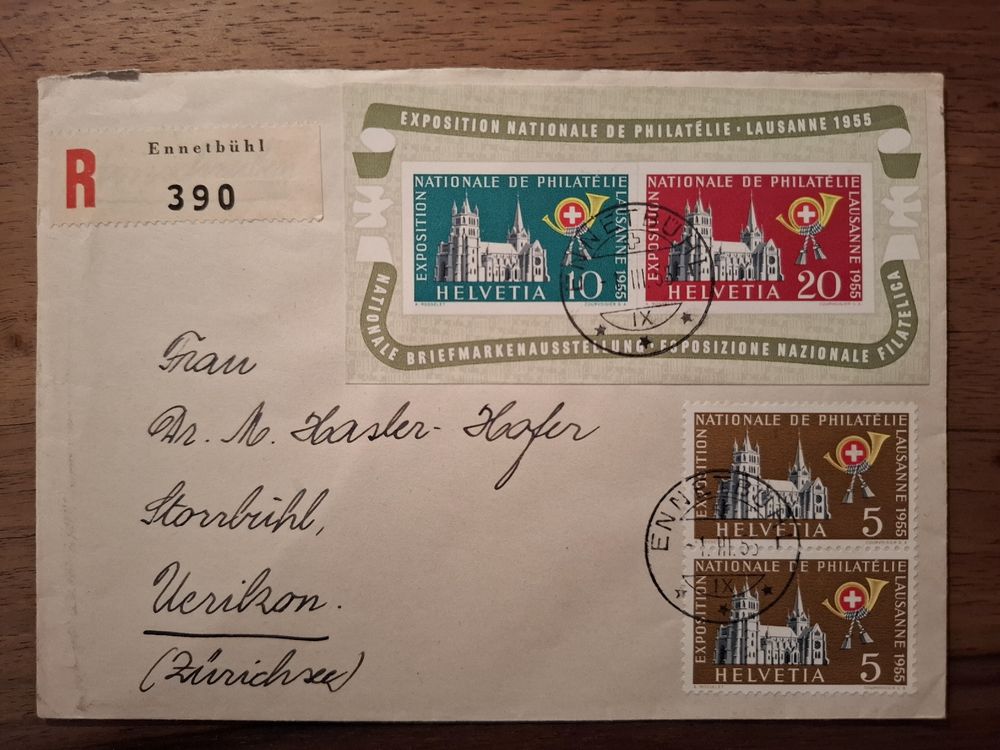 R
Ennetbühl
390
EXPOSITION NATIONALE DE PHILATÉLIE · LAUSANNE 1955
NATIONALE DE PHILATÉLIE
EXPOSITION
LAUSANNE 1955
10
HELVETIA
COURVOISIER S.A.
NATIONALE DE PHILATÉLIE
EXPOSITION
LAUSANNE 1955
20
HELVETIA
COURVOISIER S.A.
ENNETBÜHL
IX
NATIONALE BRIEFMARKENAUSSTELLUNG · ESPOSIZIONE NAZIONALE FILATELICA
Frau
Dr. M. Hasler-Hofer
Storrbühl,
Uerikon.
(Zürichsee)
NATIONALE DE PHILATÉLIE
EXPOSITION
LAUSANNE 1955
5
HELVETIA
COURVOISIER S.A.
ENNETBÜHL
1. III. 55
IX
NATIONALE DE PHILATÉLIE
EXPOSITION
LAUSANNE 1955
5
HELVETIA
COURVOISIER S.A.